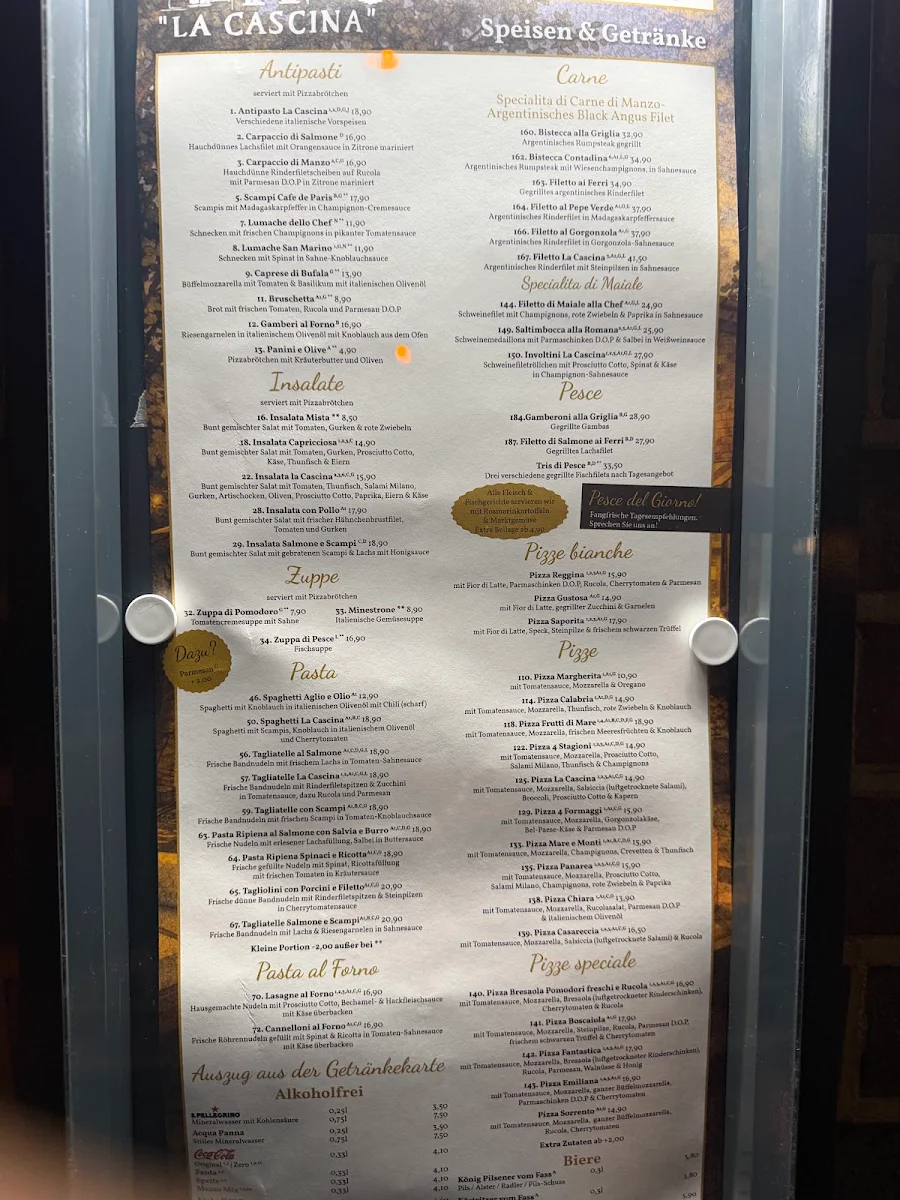 "LA CASCINA"
Speisen & Getränke
Antipasti
serviert mit Pizzabrötchen
1. Antipasto La Cascina 18,90
Verschiedene italienische Vorspeisen
2. Carpaccio di Salmone D 16,90
Hauchdünnes Lachsfilet mit Orangensauce in Zitrone mariniert
3. Carpaccio di Manzo A,C,G 16,90
Hauchdünne Rinderfiletscheiben auf Rucola
mit Parmesan D.O.P in Zitrone mariniert
5. Scampi Cafe de Paris B,G ** 17,90
Scampis mit Madagaskarpfeffer in Champignon-Cremesauce
7. Lumache dello Chef N ** 11,90
Schnecken mit frischen Champignons in pikanter Tomatensauce
8. Lumache San Marino ** 11,90
Schnecken mit Spinat in Sahne-Knoblauchsauce
9. Caprese di Bufala G ** 13,90
Büffelmozzarella mit Tomaten & Basilikum mit italienischen Olivenöl
11. Bruschetta A1,G ** 8,90
Brot mit frischen Tomaten, Rucola und Parmesan D.O.P
12. Gamberi al Forno B 16,90
Riesengarnelen in italienischem Olivenöl mit Knoblauch aus dem Ofen
13. Panini e Olive A ** 4,90
Pizzabrötchen mit Kräuterbutter und Oliven
Insalate
serviert mit Pizzabrötchen
16. Insalata Mista ** 8,50
Bunt gemischter Salat mit Tomaten, Gurken & rote Zwiebeln
18. Insalata Capricciosa 14,90
Bunt gemischter Salat mit Tomaten, Gurken, Prosciutto Cotto,
Käse, Thunfisch & Eiern
22. Insalata la Cascina 15,90
Bunt gemischter Salat mit Tomaten, Thunfisch, Salami Milano,
Gurken, Artischocken, Oliven, Prosciutto Cotto, Paprika, Eiern & Käse
28. Insalata con Pollo A1 17,90
Bunt gemischter Salat mit frischer Hähnchenbrustfilet,
Tomaten und Gurken
29. Insalata Salmone e Scampi C,D 18,90
Bunt gemischter Salat mit gebratenen Scampi & Lachs mit Honigsauce
Zuppe
serviert mit Pizzabrötchen
32. Zuppa di Pomodoro G ** 7,90
Tomatencremesuppe mit Sahne
33. Minestrone ** 8,90
Italienische Gemüsesuppe
34. Zuppa di Pesce L ** 16,90
Fischsuppe
Dazu?
Parmesan
+ 2,00
Pasta
46. Spaghetti Aglio e Olio A1 12,90
Spaghetti mit Knoblauch in italienischen Olivenöl mit Chili (scharf)
50. Spaghetti La Cascina A1,B,C 18,90
Spaghetti mit Scampis, Knoblauch in italienischem Olivenöl
und Cherrytomaten
56. Tagliatelle al Salmone 18,90
Frische Bandnudeln mit frischem Lachs in Tomaten-Sahnesauce
57. Tagliatelle La Cascina 18,90
Frische Bandnudeln mit Rinderfiletspitzen & Zucchini
in Tomatensauce, dazu Rucola und Parmesan
59. Tagliatelle con Scampi A1,B,C,G 18,90
Frische Bandnudeln mit frischen Scampi in Tomaten-Knoblauchsauce
63. Pasta Ripiena al Salmone con Salvia e Burro A1,C,D,G 18,90
Frische Nudeln mit erlesener Lachsfüllung, Salbei in Buttersauce
64. Pasta Ripiena Spinaci e Ricotta A1,C,G 18,90
Frische gefüllte Nudeln mit Spinat, Ricottafüllung
mit frischen Tomaten in Kräutersauce
65. Tagliolini con Porcini e Filetto A1,C,G 20,90
Frische dünne Bandnudeln mit Rinderfiletspitzen & Steinpilzen
in Cherrytomatensauce
67. Tagliatelle Salmone e Scampi A1,B,C,G 20,90
Frische Bandnudeln mit Lachs & Riesengarnelen in Sahnesauce
Kleine Portion -2,00 außer bei **
Pasta al Forno
70. Lasagne al Forno 16,90
Hausgemachte Nudeln mit Prosciutto Cotto, Bechamel- & Hackfleischsauce
mit Käse überbacken
72. Cannelloni al Forno A1,C,G 16,90
Frische Röhrennudeln gefüllt mit Spinat & Ricotta in Tomaten-Sahnesauce
mit Käse überbacken
Auszug aus der Getränkekarte
Alkoholfrei
S.PELLEGRINO 0,25l 3,50
Mineralwasser mit Kohlensäure 0,75l 7,50
Acqua Panna 0,25l 3,50
Stilles Mineralwasser 0,75l 7,50
Coca-Cola 0,33l 4,10
Original | Zero
Fanta 0,33l 4,10
Sprite 0,33l 4,10
Mezzo Mix 0,33l 4,10
Carne
Specialita di Carne di Manzo-
Argentinisches Black Angus Filet
160. Bistecca alla Griglia 32,90
Argentinisches Rumpsteak gegrillt
162. Bistecca Contadina 34,90
Argentinisches Rumpsteak mit Wiesenchampignons, in Sahnesauce
163. Filetto ai Ferri 34,90
Gegrilltes argentinisches Rinderfilet
164. Filetto al Pepe Verde 37,90
Argentinisches Rinderfilet in Madagaskarpfeffersauce
166. Filetto al Gorgonzola A1,G 37,90
Argentinisches Rinderfilet in Gorgonzola-Sahnesauce
167. Filetto La Cascina 41,50
Argentinisches Rinderfilet mit Steinpilzen in Sahnesauce
Specialita di Maiale
144. Filetto di Maiale alla Chef 24,90
Schweinefilet mit Champignons, rote Zwiebeln & Paprika in Sahnesauce
149. Saltimbocca alla Romana 25,90
Schweinemedaillons mit Parmaschinken D.O.P & Salbei in Weißweinsauce
150. Involtini La Cascina 27,90
Schweinefiletröllchen mit Prosciutto Cotto, Spinat & Käse
in Champignon-Sahnesauce
Pesce
184.Gamberoni alla Griglia B,G 28,90
Gegrillte Gambas
187. Filetto di Salmone ai Ferri B,D 27,90
Gegrilltes Lachsfilet
Tris di Pesce B,D ** 33,50
Drei verschiedene gegrillte Fischfilets nach Tagesangebot
Alle Fleisch &
Fischgerichte servieren wir
mit Rosmarinkartoffeln
& Marktgemüse
Extra Beilage ab 4,90
Pesce del Giorno!
Fangfrische Tagesempfehlungen.
Sprechen Sie uns an!
Pizze bianche
Pizza Reggina 15,90
mit Fior di Latte, Parmaschinken D.O.P, Rucola, Cherrytomaten & Parmesan
Pizza Gustosa A1,G 14,90
mit Fior di Latte, gegrillter Zucchini & Garnelen
Pizza Saporita 17,90
mit Fior di Latte, Speck, Steinpilze & frischem schwarzen Trüffel
Pizze
110. Pizza Margherita 10,90
mit Tomatensauce, Mozzarella & Oregano
114. Pizza Calabria 14,90
mit Tomatensauce, Mozzarella, Thunfisch, rote Zwiebeln & Knoblauch
118. Pizza Frutti di Mare 18,90
mit Tomatensauce, Mozzarella, frischen Meeresfrüchten & Knoblauch
122. Pizza 4 Stagioni 14,90
mit Tomatensauce, Mozzarella, Prosciutto Cotto,
Salami Milano, Thunfisch & Champignons
125. Pizza La Cascina 14,90
mit Tomatensauce, Mozzarella, Salsiccia (luftgetrocknete Salami),
Broccoli, Prosciutto Cotto & Kapern
129. Pizza 4 Formaggi 15,90
mit Tomatensauce, Mozzarella, Gorgonzolakäse,
Bel-Paese-Käse & Parmesan D.O.P
133. Pizza Mare e Monti 15,90
mit Tomatensauce, Mozzarella, Champignons, Crevetten & Thunfisch
135. Pizza Panarea 15,90
mit Tomatensauce, Mozzarella, Prosciutto Cotto,
Salami Milano, Champignons, rote Zwiebeln & Paprika
138. Pizza Chiara 13,90
mit Tomatensauce, Mozzarella, Rucolasalat, Parmesan D.O.P
& italienischem Olivenöl
139. Pizza Casareccia 16,50
mit Tomatensauce, Mozzarella, Salsiccia (luftgetrocknete Salami) & Rucola
Pizze speciale
140. Pizza Bresaola Pomodori freschi e Rucola 16,90
mit Tomatensauce, Mozzarella, Bresaola (luftgetrockneter Rinderschinken),
Cherrytomaten & Rucola
141. Pizza Boscaiola A1,G 17,90
mit Tomatensauce, Mozzarella, Steinpilze, Rucola, Parmesan D.O.P,
frischem schwarzen Trüffel & Cherrytomaten
142. Pizza Fantastica 17,90
mit Tomatensauce, Mozzarella, Bresaola (luftgetrockneter Rinderschinken),
Rucola, Parmesan, Walnüsse & Honig
143. Pizza Emiliana 16,90
mit Tomatensauce, Mozzarella, ganzer Büffelmozzarella,
Parmaschinken D.O.P & Cherrytomaten
Pizza Sorrento A1,G 14,90
mit Tomatensauce, Mozzarella, ganzer Büffelmozzarella,
Rucola, Cherrytomaten
Extra Zutaten ab +2,00
Biere
König Pilsener vom Fass A 0,3l 3,80
Pils / Alster / Radler / Pils-Schuss
vom Fass A 0,3l 3,80
3,90